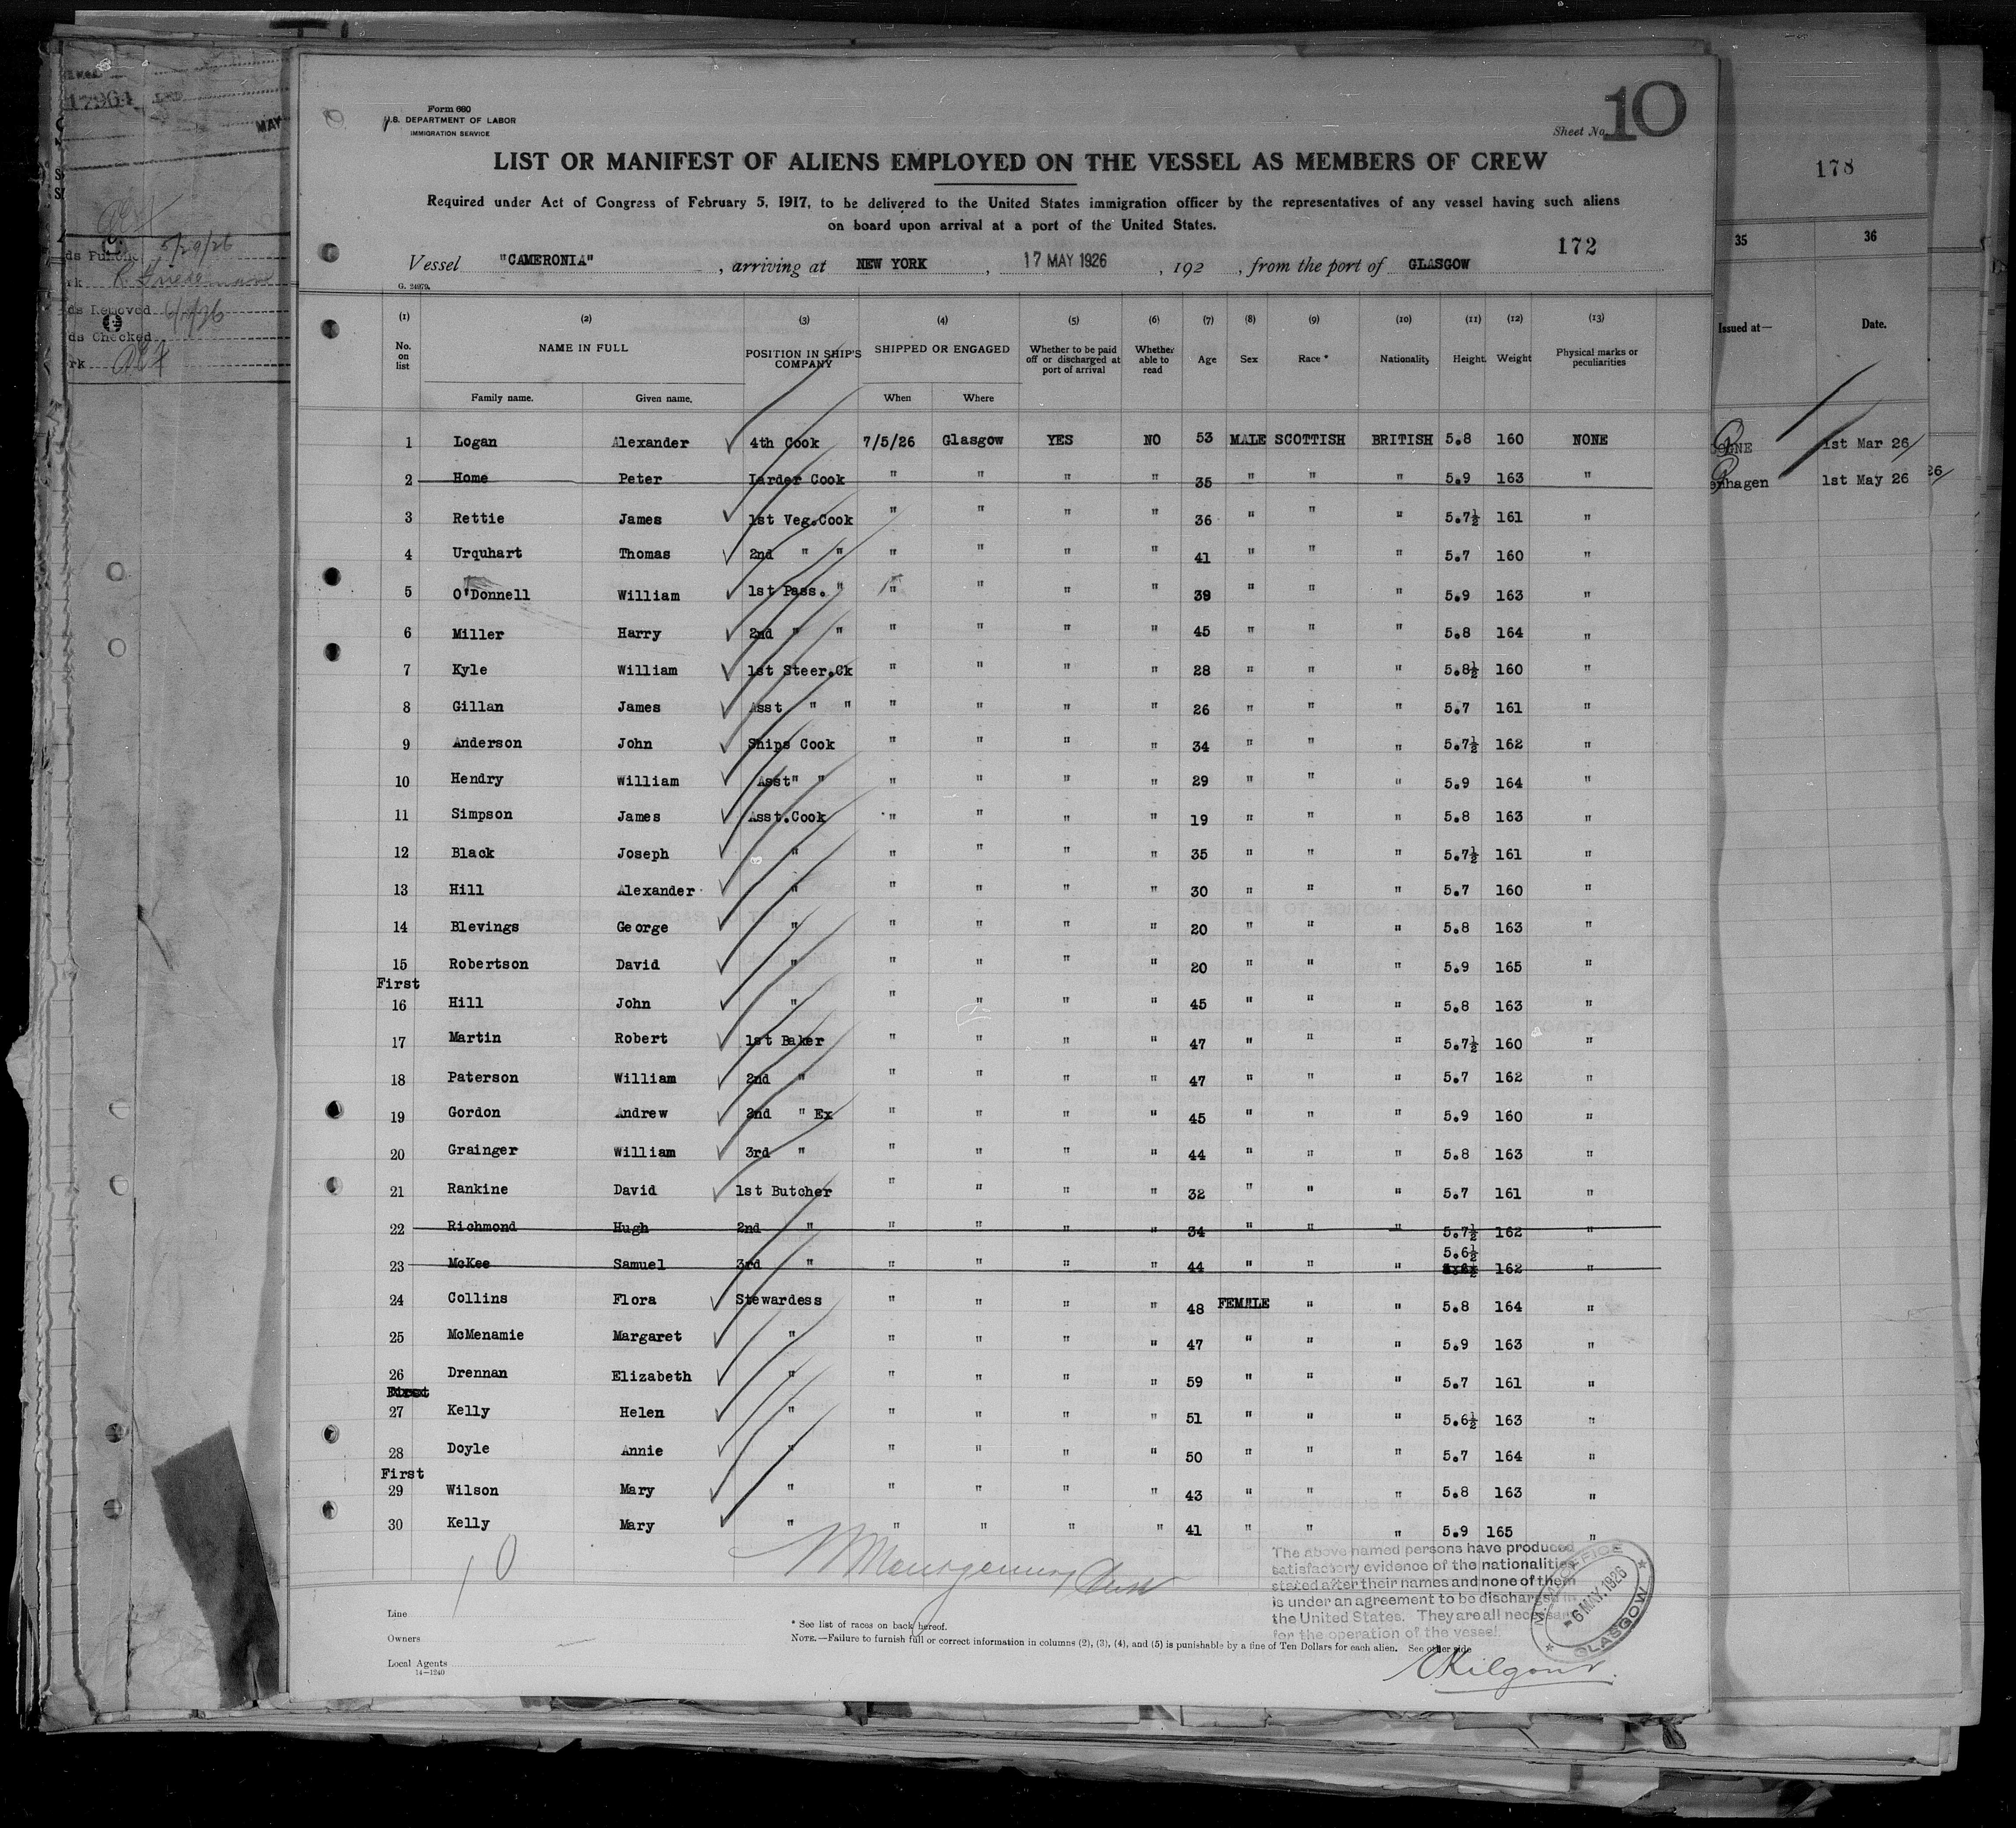 Form 680
U.S. DEPARTMENT OF LABOR
IMMIGRATION SERVICE
Sheet No. 10
LIST OR MANIFEST OF ALIENS EMPLOYED ON THE VESSEL AS MEMBERS OF CREW
Required under Act of Congress of February 5, 1917, to be delivered to the United States immigration officer by the representatives of any vessel having such aliens
on board upon arrival at a port of the United States.
172
Vessel "CAMERONIA" , arriving at NEW YORK , 17 MAY 1926 , 192 , from the port of GLASGOW
G. 24979.
(1) (2) (3) (4) (5) (6) (7) (8) (9) (10) (11) (12) (13)
No. on list NAME IN FULL POSITION IN SHIP'S COMPANY SHIPPED OR ENGAGED Whether to be paid off or discharged at port of arrival Whether able to read Age Sex Race * Nationality Height Weight Physical marks or peculiarities
Family name. Given name. When Where
1 Logan Alexander 4th Cook 7/5/26 Glasgow YES NO 53 MALE SCOTTISH BRITISH 5.8 160 NONE
2 Home Peter Larder Cook " " " " 35 " " " 5.9 163 "
3 Rettie James 1st Veg.Cook " " " " 36 " " " 5.7½ 161 "
4 Urquhart Thomas 2nd " " " " " " 41 " " " 5.7 160 "
5 O'Donnell William 1st Pass. " " " " " 39 " " " 5.9 163 "
6 Miller Harry 2nd " " " " " " 45 " " " 5.8 164 "
7 Kyle William 1st Steer.Ck " " " " 28 " " " 5.8½ 160 "
8 Gillan James Asst " " " " " " 26 " " " 5.7 161 "
9 Anderson John Ships Cook " " " " 34 " " " 5.7½ 162 "
10 Hendry William Asst" " " " " " 29 " " " 5.9 164 "
11 Simpson James Asst.Cook " " " " 19 " " " 5.8 163 "
12 Black Joseph " " " " " 35 " " " 5.7½ 161 "
13 Hill Alexander " " " " " 30 " " " 5.7 160 "
14 Blevings George " " " " " 20 " " " 5.8 163 "
15 Robertson David " " " " " 20 " " " 5.9 165 "
First
16 Hill John " " " " " 45 " " " 5.8 163 "
17 Martin Robert 1st Baker " " " " 47 " " " 5.7½ 160 "
18 Paterson William 2nd " " " " " 47 " " " 5.7 162 "
19 Gordon Andrew 2nd " Ex " " " " 45 " " " 5.9 160 "
20 Grainger William 3rd " " " " " 44 " " " 5.8 163 "
21 Rankine David 1st Butcher " " " " 32 " " " 5.7 161 "
22 Richmond Hugh 2nd " " " " " 34 " " " 5.7½ 162 "
5.6½
23 McKee Samuel 3rd " " " " " 44 " " " 162 "
24 Collins Flora Stewardess " " " " 48 FEMALE " " 5.8 164 "
25 McMenamie Margaret " " " " " 47 " " " 5.9 163 "
26 Drennan Elizabeth " " " " " 59 " " " 5.7 161 "
First
27 Kelly Helen " " " " " 51 " " " 5.6½ 163 "
28 Doyle Annie " " " " " 50 " " " 5.7 164 "
First
29 Wilson Mary " " " " " 43 " " " 5.8 163 "
30 Kelly Mary " " " " " 41 " " " 5.9 165 "
10
The above named persons have produced
satisfactory evidence of the nationalities
stated after their names and none of them
is under an agreement to be discharged in
the United States. They are all necessary
for the operation of the vessel.
M.M. OFFICE
6 MAY. 1926
GLASGOW
Kilgour
Line
Owners
Local Agents
14—1240
* See list of races on back hereof.
NOTE.—Failure to furnish full or correct information in columns (2), (3), (4), and (5) is punishable by a fine of Ten Dollars for each alien. See other side
17964
MAY
5/29/26
ds Removed
ds Checked
178
35 36
Issued at— Date.
OGNE 1st Mar 26
enhagen 1st May 26
26